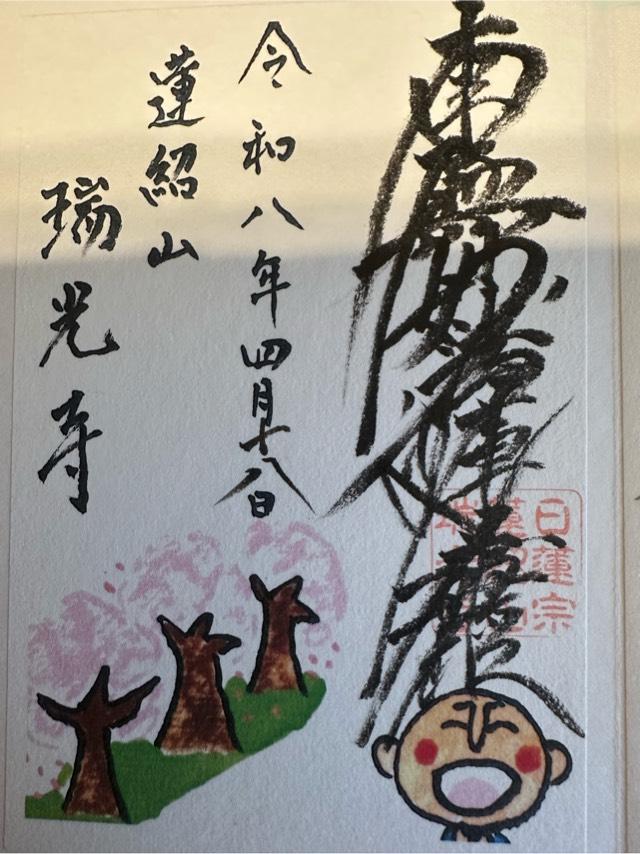 南無妙法蓮華経
令和八年四月十八日
蓮紹山
瑞光寺
日蓮宗
蓮紹山
瑞光寺